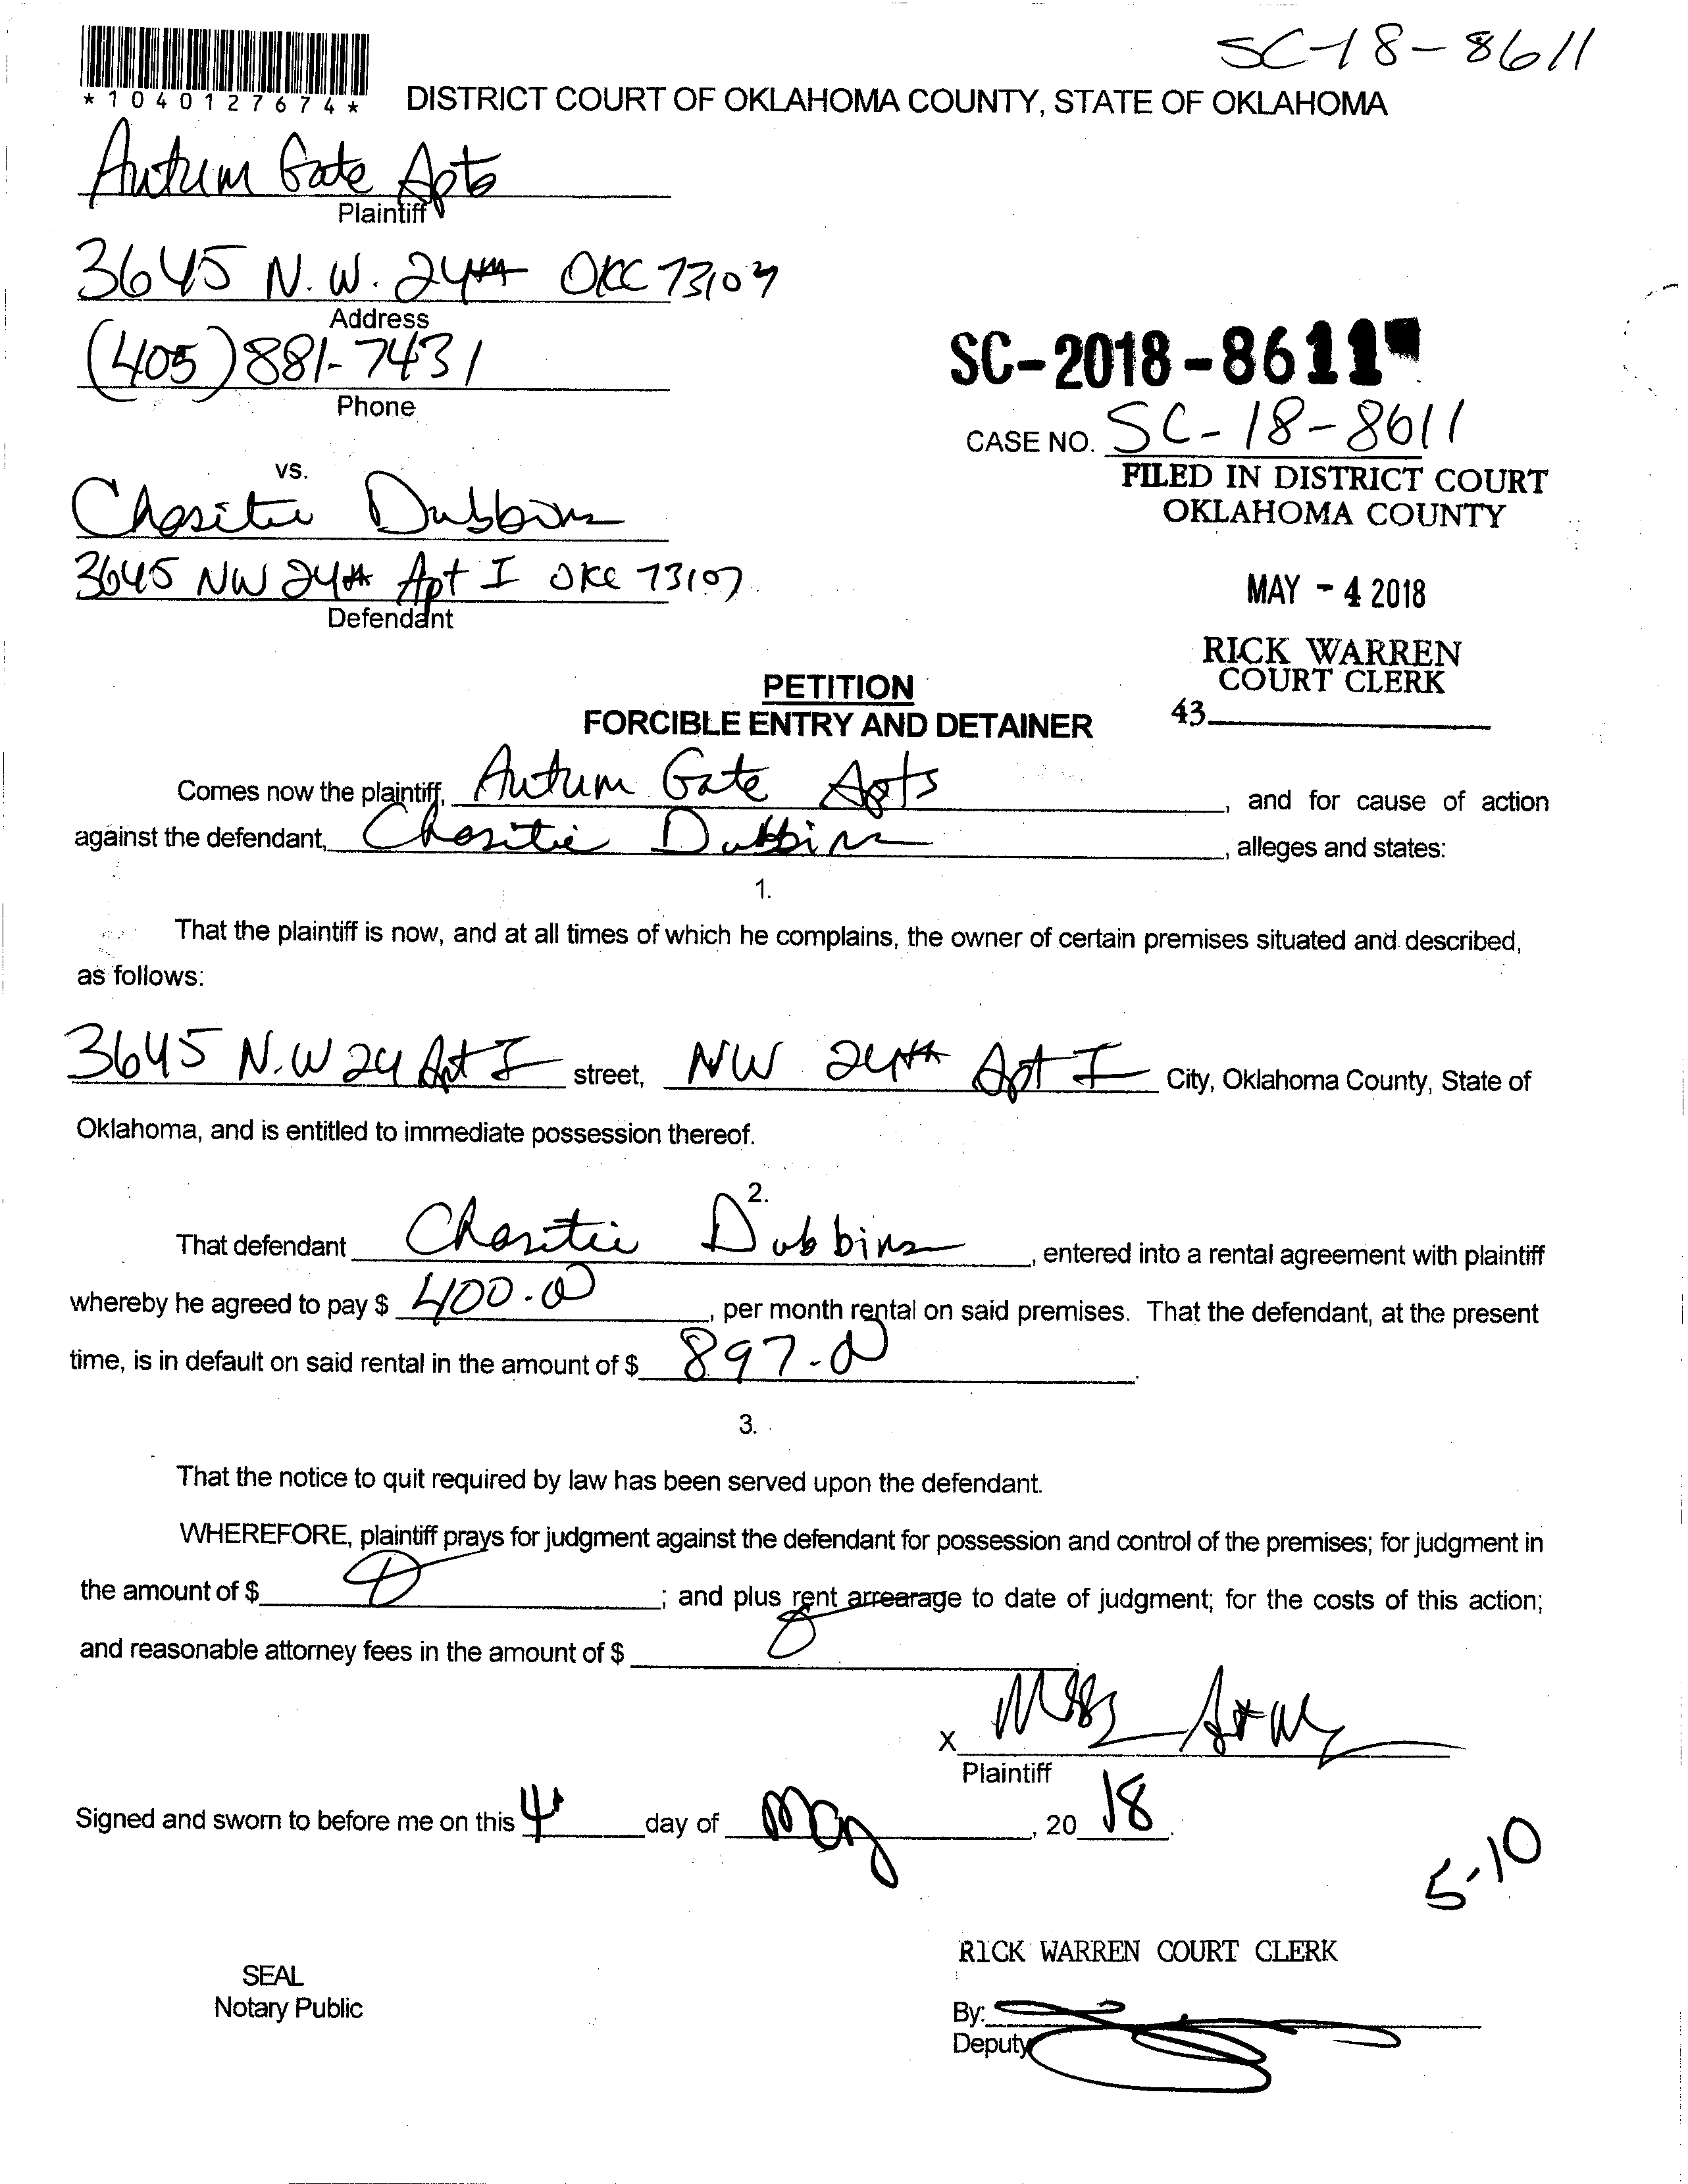 SC-18-8611
*1040127674*
DISTRICT COURT OF OKLAHOMA COUNTY, STATE OF OKLAHOMA
Autum Gate Apts
Plaintiff
3645 N.W. 24th OKC 73107
Address
(405) 881-7431
Phone
SC-2018-8611
CASE NO. SC-18-8611
FILED IN DISTRICT COURT
OKLAHOMA COUNTY
MAY - 4 2018
RICK WARREN
COURT CLERK
43
vs.
Chasitie Dubbins
3645 NW 24th Apt I OKC 73107
Defendant
PETITION
FORCIBLE ENTRY AND DETAINER
Comes now the plaintiff, Autum Gate Apts, and for cause of action
against the defendant, Chasitie Dubbins, alleges and states:
1.
That the plaintiff is now, and at all times of which he complains, the owner of certain premises situated and described,
as follows:
3645 N.W 24 Apt I street, NW 24th Apt I City, Oklahoma County, State of
Oklahoma, and is entitled to immediate possession thereof.
2.
That defendant Chasitie Dubbins, entered into a rental agreement with plaintiff
whereby he agreed to pay $ 400.00, per month rental on said premises. That the defendant, at the present
time, is in default on said rental in the amount of $ 897.00.
3.
That the notice to quit required by law has been served upon the defendant.
WHEREFORE, plaintiff prays for judgment against the defendant for possession and control of the premises; for judgment in
the amount of $ ; and plus rent arrearage to date of judgment; for the costs of this action;
and reasonable attorney fees in the amount of $
X
Plaintiff
Signed and sworn to before me on this 4 day of May, 20 18.
5-10
RICK WARREN COURT CLERK
SEAL
Notary Public
By:
Deputy